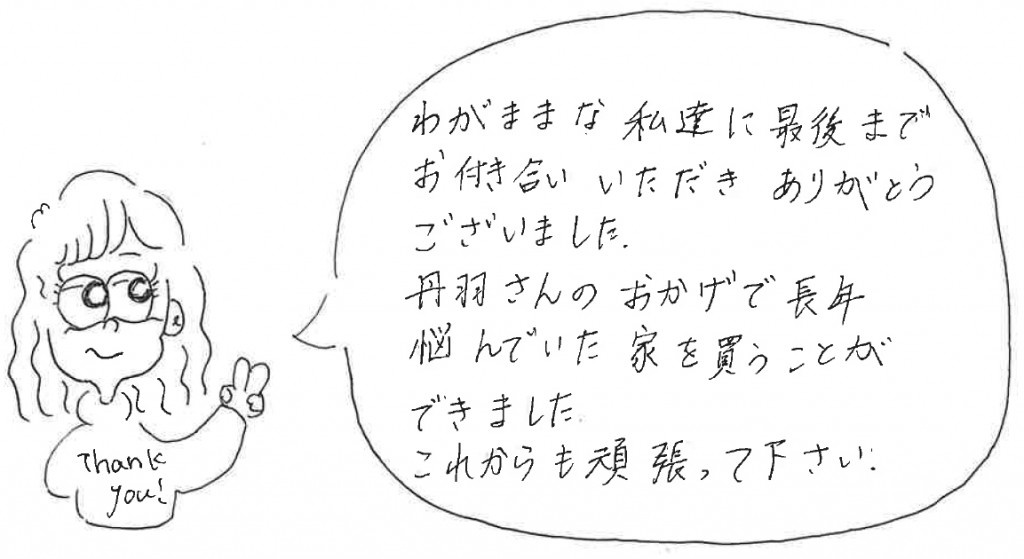 わがままな私達に最後まで
お付き合いいただきありがとう
ございました.
丹羽さんのおかげで長年
悩んでいた家を買うことが
できました.
これからも頑張って下さい.
Thank
you!